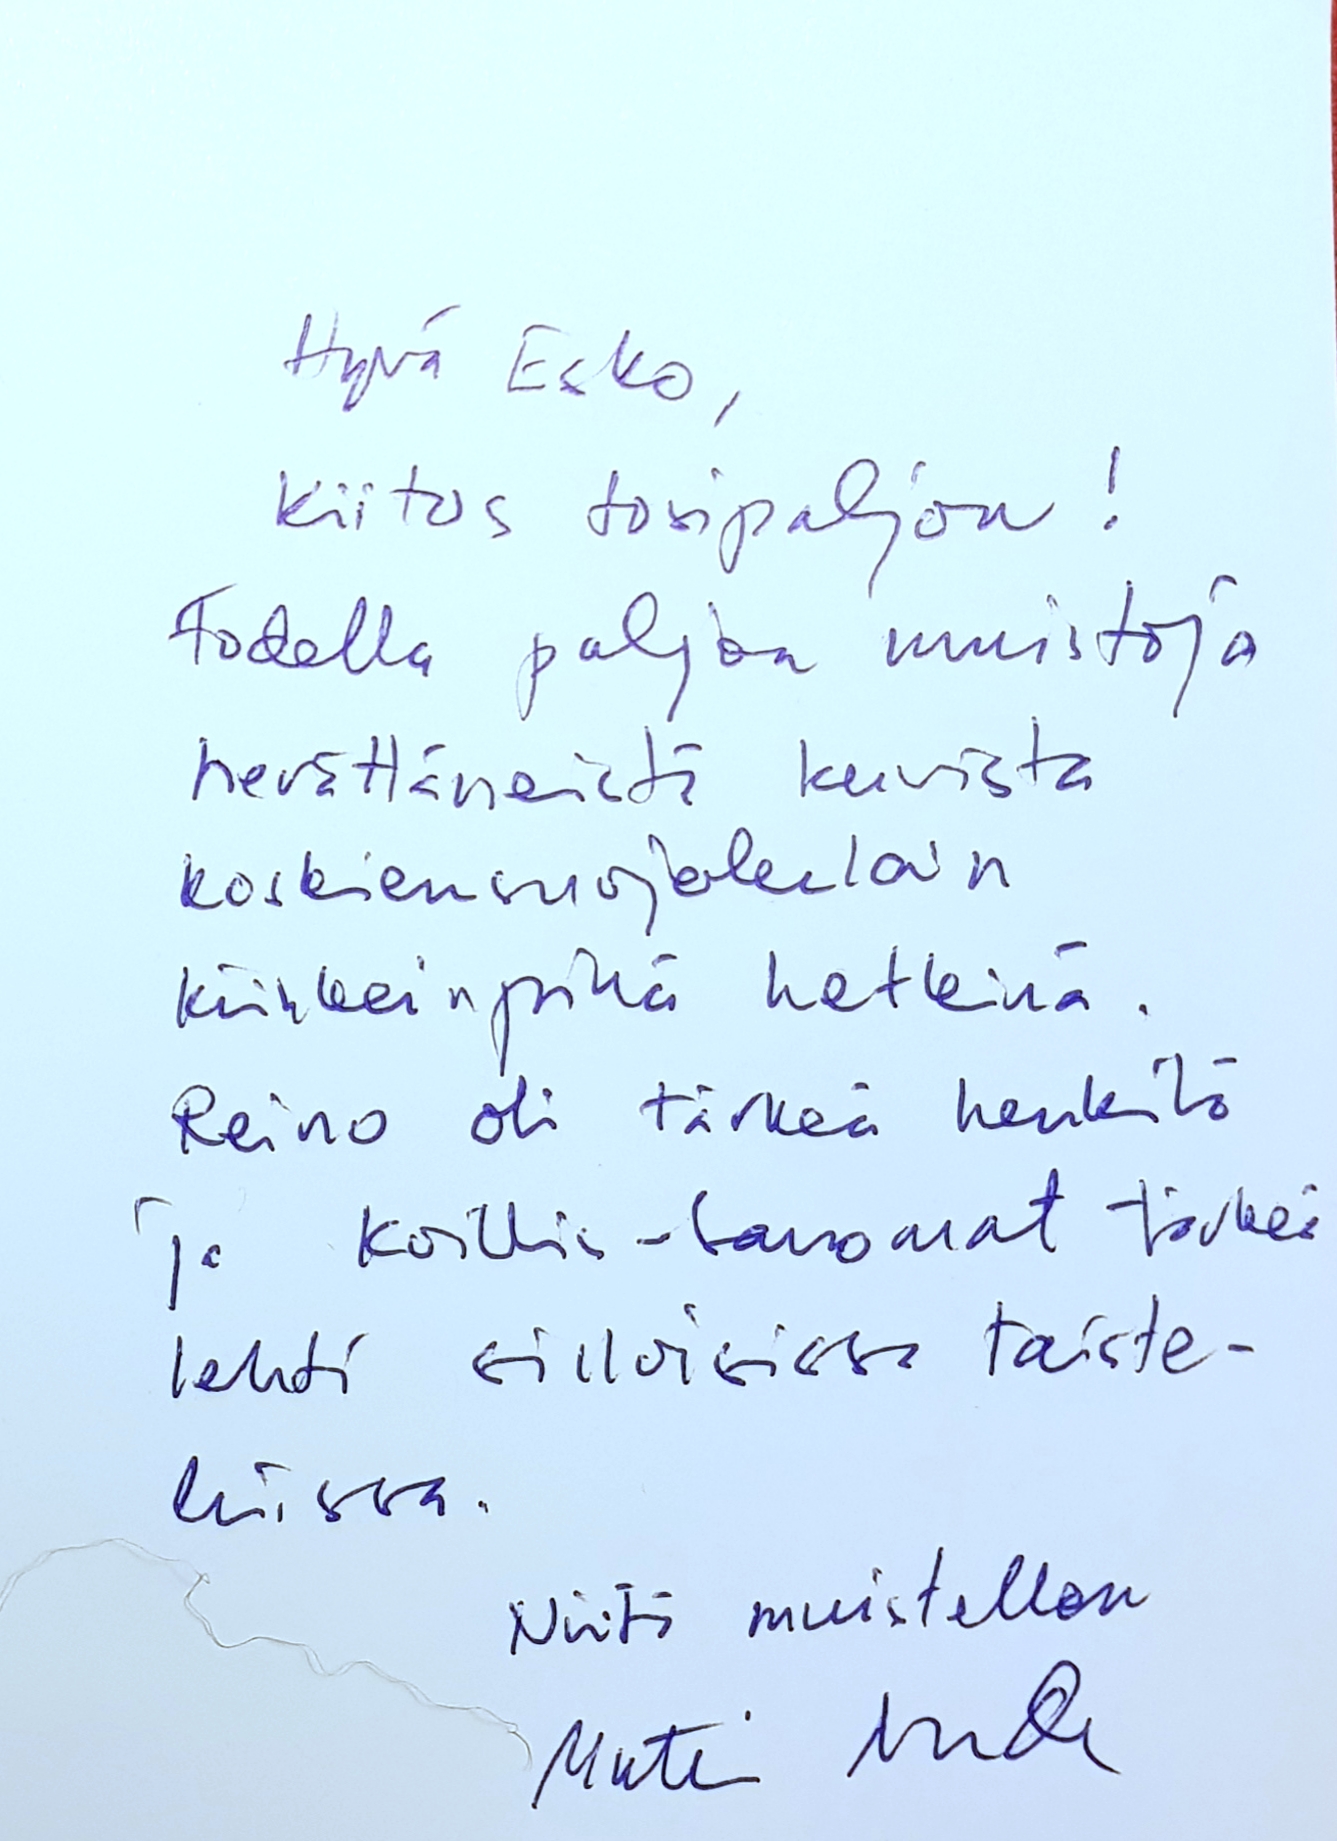 Hyvä Esko,
Kiitos tosipaljon!
Todella paljon muistoja
herättäneistä kuvista
koskiensuojelulain
kiihkeinpinä hetkinä.
Reino oli tärkeä henkilö
ja Koillis-Sanomat tärkeä
lehti silloisissa taiste-
luissa.
Niitä muistellen
Matti